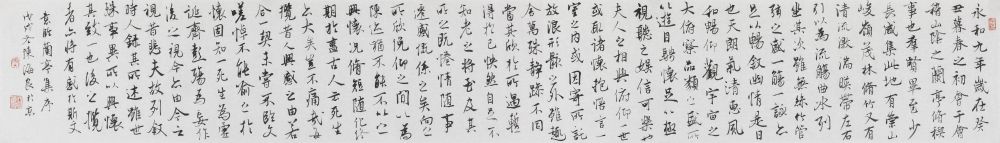 永和九年歲在癸
丑暮春之初會于會
稽山陰之蘭亭脩稧
事也羣賢畢至少
長咸集此地有崇山
峻嶺茂林脩竹又有
清流激湍暎帶左右
引以為流觴曲水列
坐其次雖無絲竹管
弦之盛一觴一詠亦
足以暢敘幽情是日
也天朗氣清惠風
和暢仰觀宇宙之
大俯察品類之盛所
以遊目騁懷足以極
視聽之娛信可樂也
夫人之相與俯仰一世
或取諸懷抱悟言一
室之內或因寄所託
放浪形骸之外雖趣
舍萬殊靜躁不同
當其欣於所遇暫
得於己怏然自足不
知老之將至及其
所之既惓情隨事
遷感慨係之矣向之
所欣俛仰之間以為
陳跡猶不能不以之
興懷況脩短隨化終
期於盡古人云死生
亦大矣豈不痛哉每
攬昔人興感之由若
合一契未嘗不臨文
嗟悼不能喻之於
懷固知一死生為虛
誕齊彭殤為妄作
後之視今亦由今之
視昔悲夫故列敘
時人錄其所述雖世
殊事異所以興懷
其致一也後之攬
者亦將有感於斯文
蘭亭集序
戊戌冬陳海良於京